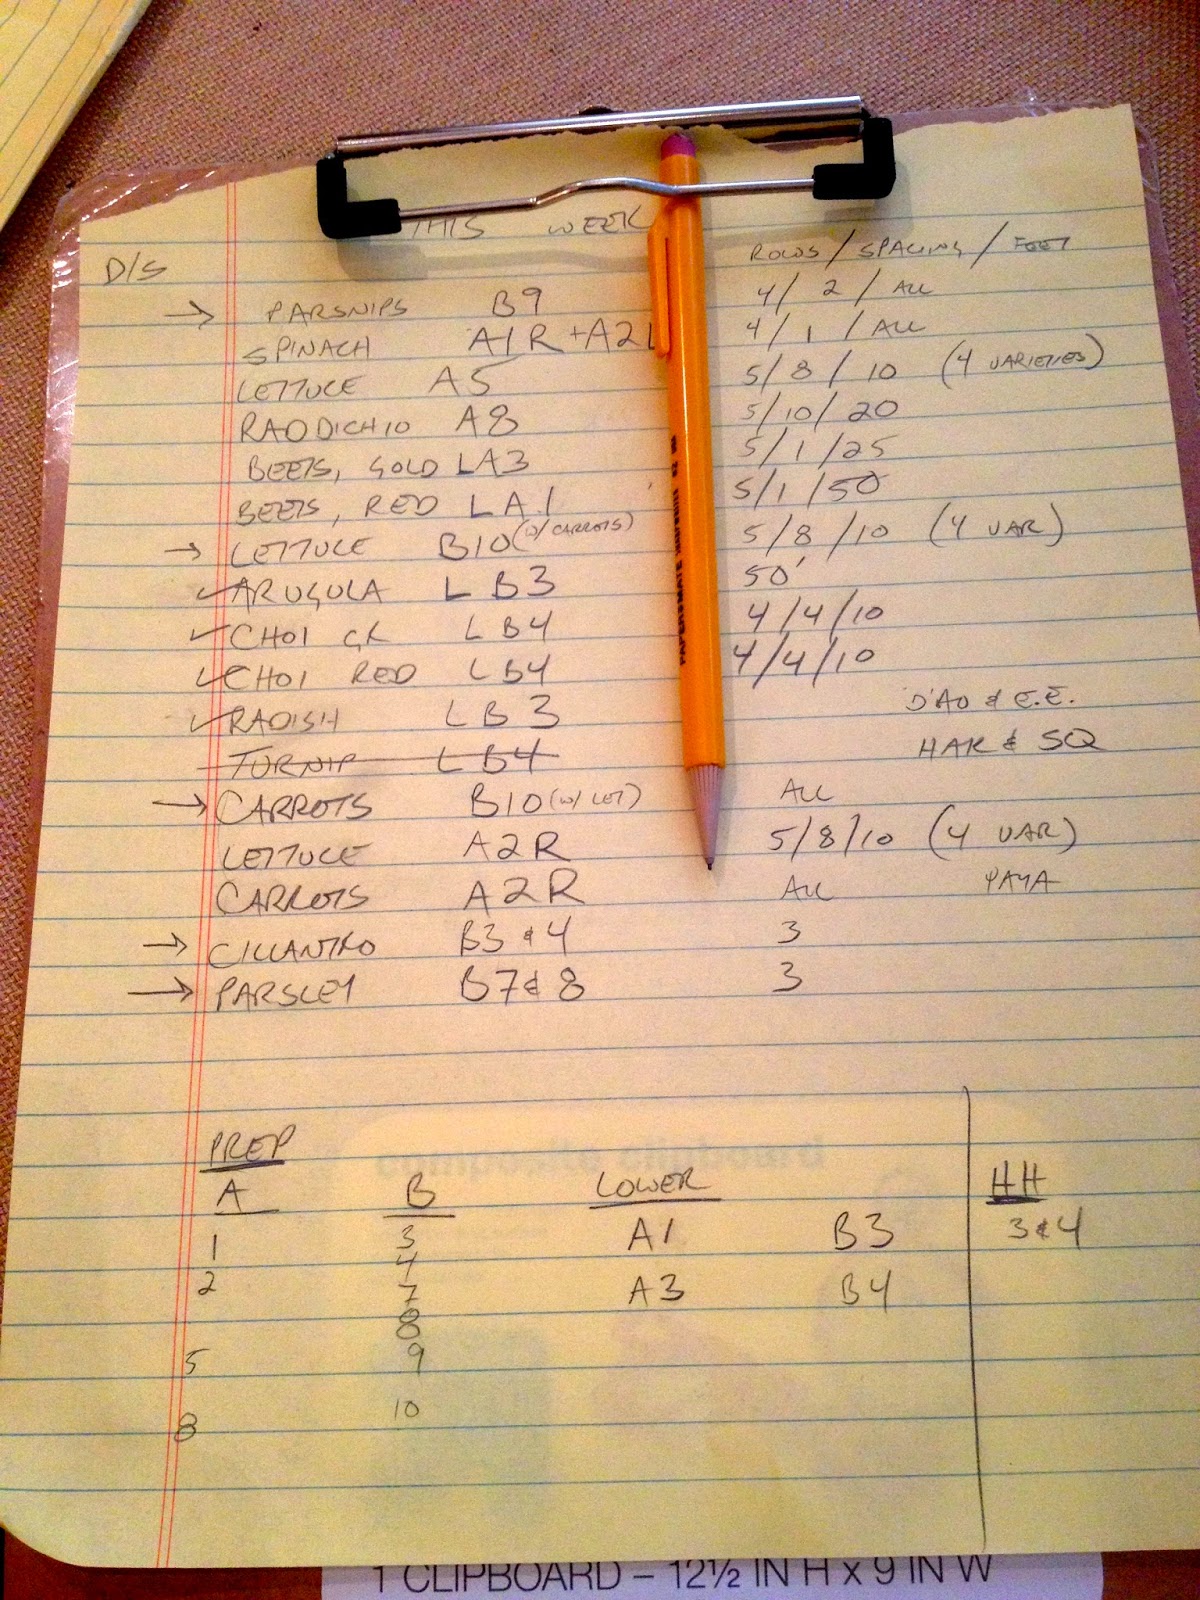 THIS WEEK
D/S ROWS / SPACING / FEET
→ PARSNIPS B9 4/ 2 / ALL
SPINACH A1R + A2L 4/ 1 / ALL
LETTUCE A5 5/ 8 / 10 (4 VARIETIES)
RADDICHIO A8 5/10/ 20
BEETS, GOLD LA3 5/ 1 /25
BEETS, RED LA1 5/1/50
→ LETTUCE B10 (W/ CARROTS) 5/8/10 (4 VAR)
✓ ARUGULA L B3 50'
✓ CHOI GR L B4 4/4/10
✓ CHOI RED L B4 4/4/10
✓ RADISH L B3 D'AO & E.E.
TURNIP L B4 HAK & SQ
→ CARROTS B10 (W/ LET) ALL
LETTUCE A2R 5/8/10 (4 VAR)
CARROTS A2R ALL YAYA
→ CILLANTRO B3 & 4 3
→ PARSLEY B7 & 8 3
PREP
A B LOWER HH
1 3 A1 B3 3 & 4
4
2 7 A3 B4
8
5 9
10
8
PAPERMATE
#2
composite clipboard
1 CLIPBOARD – 12½ IN H x 9 IN W